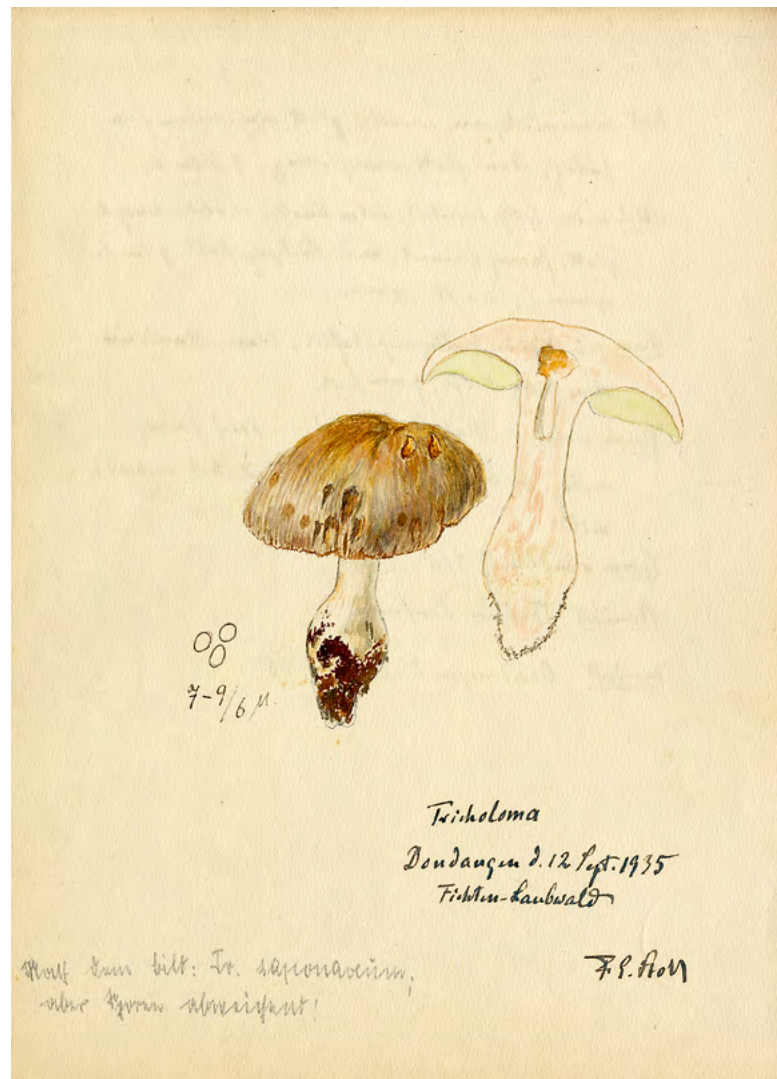 7-9/6 µ.
Tricholoma
Dondangen d. 12 Sept. 1935
Fichten-Laubwald
F. E. Stoll
Nach dem Bild: Tr. saponaceum,
aber Sporen abweichend!